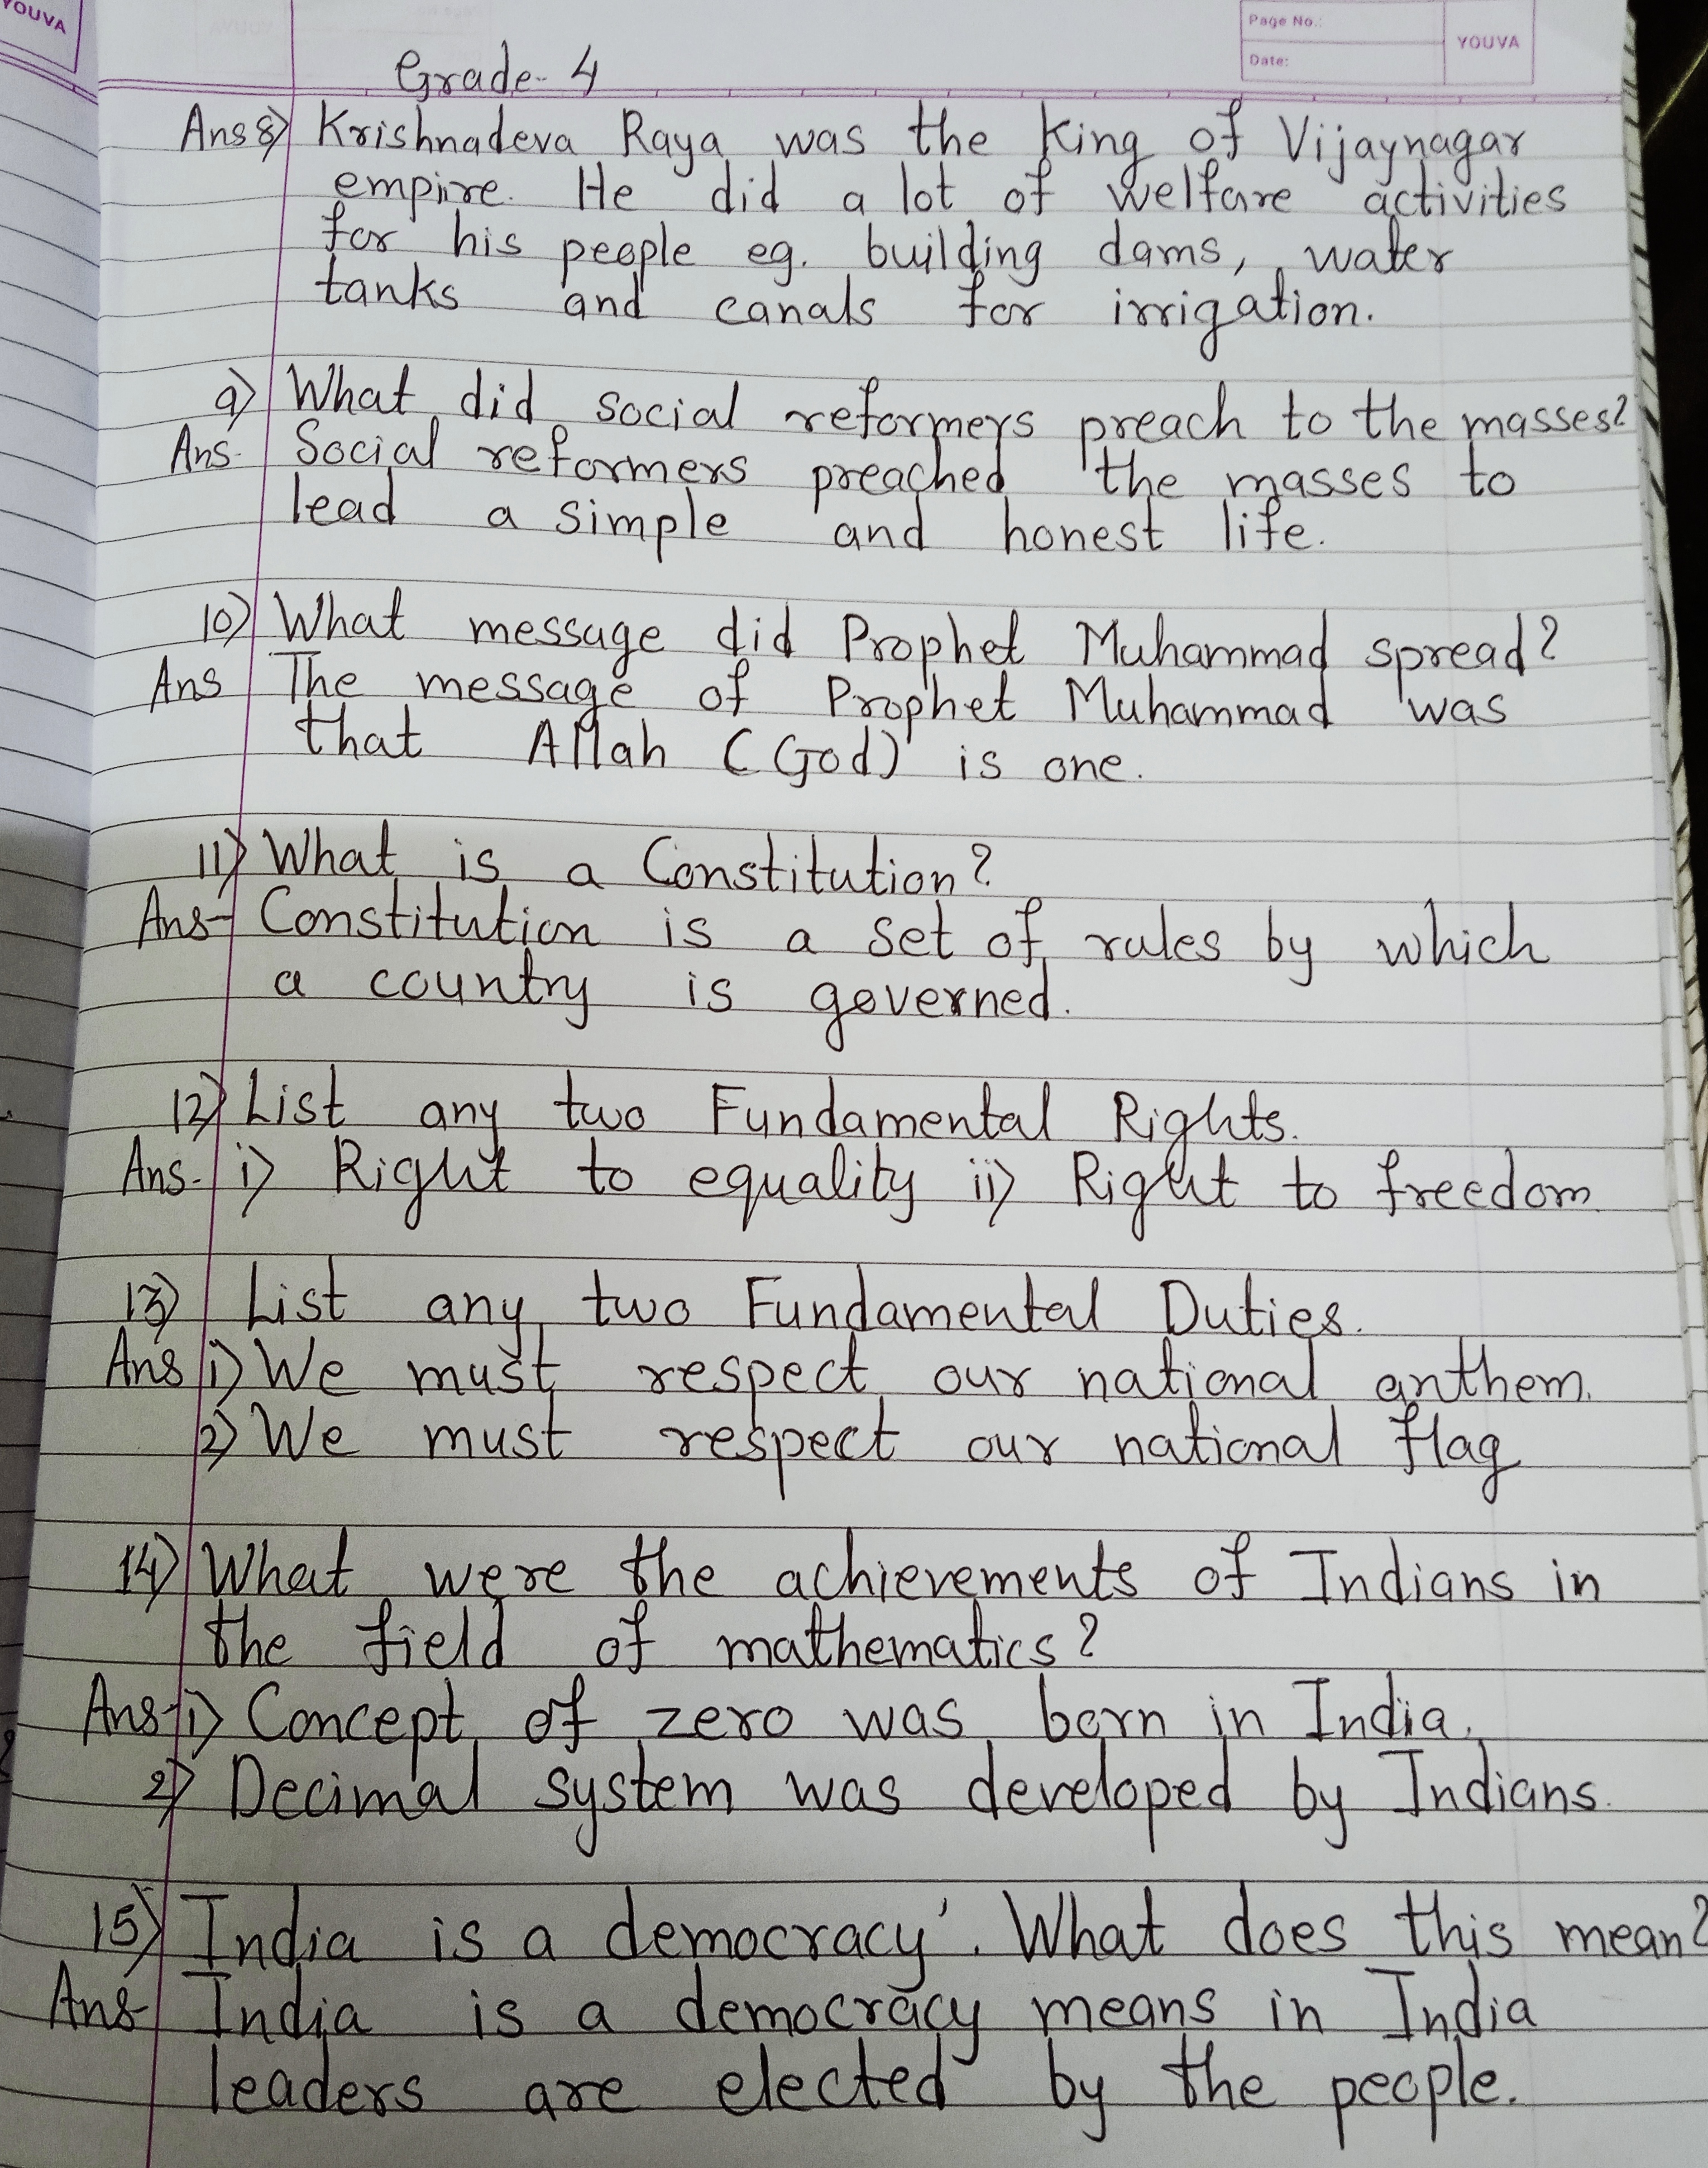 YOUVA
Page No.:
Date:
YOUVA
Grade- 4
Ans 8) Krishnadeva Raya was the King of Vijaynagar
empire. He did a lot of welfare activities
for his people eg. building dams, water
tanks and canals for irrigation.
9) What did social reformers preach to the masses?
Ans. Social reformers preached the masses to
lead a simple and honest life.
10) What message did Prophet Muhammad spread?
Ans The message of Prophet Muhammad was
that Allah (God) is one.
11) What is a Constitution?
Ans- Constitution is a set of rules by which
a country is governed.
12) List any two Fundamental Rights.
Ans- i) Right to equality ii) Right to freedom
13) List any two Fundamental Duties.
Ans 1) We must respect our national anthem.
2) We must respect our national flag
14) What were the achievements of Indians in
the field of mathematics?
Ans-1) Concept of zero was born in India.
2) Decimal system was developed by Indians.
15) India is a democracy'. What does this mean?
Ans- India is a democracy means in India
leaders are elected by the people.